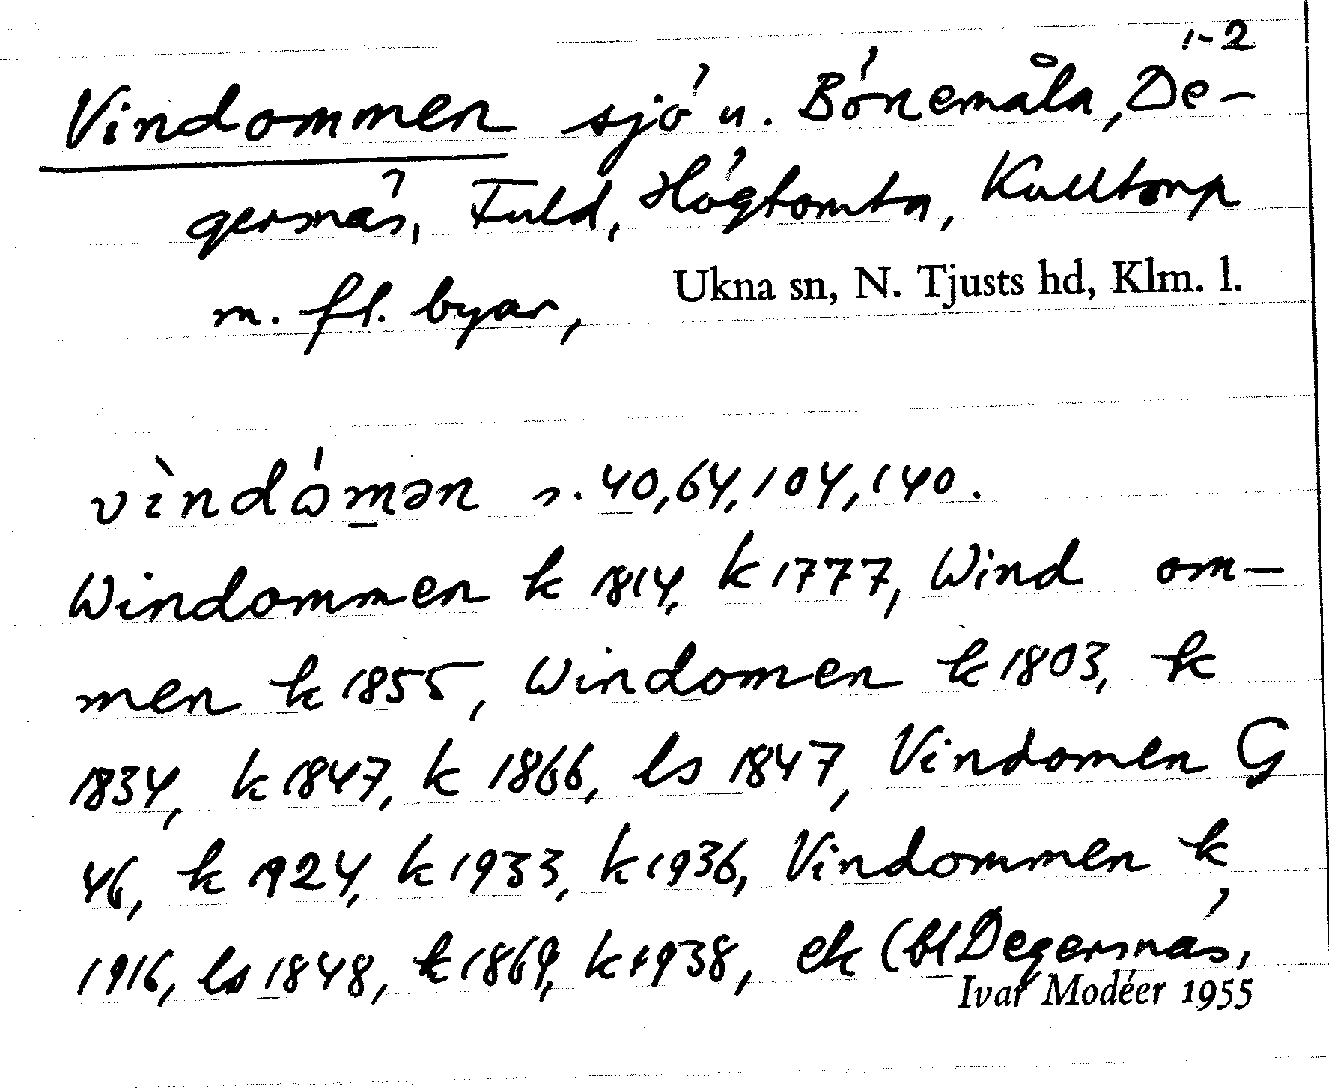 1-2
Vindommen sjö n. Bönemåla, De-
gersnäs, Fuld, Högtomta, Kulltorp
m. fl. byar, Ukna sn, N. Tjusts hd, Klm. l.
vìndómən s. 40, 64, 104, 140.
Windommen k 1814, k 1777, Wind om-
men k 1855, Windomen k 1803, k
1834, k 1847, k 1866, ls 1847, Vindomen G
46, k 1924, k 1933, k 1936, Vindommen k
1916, ls 1848, k 1869, k 1938, ek (bl Degersnäs,
Ivar Modéer 1955